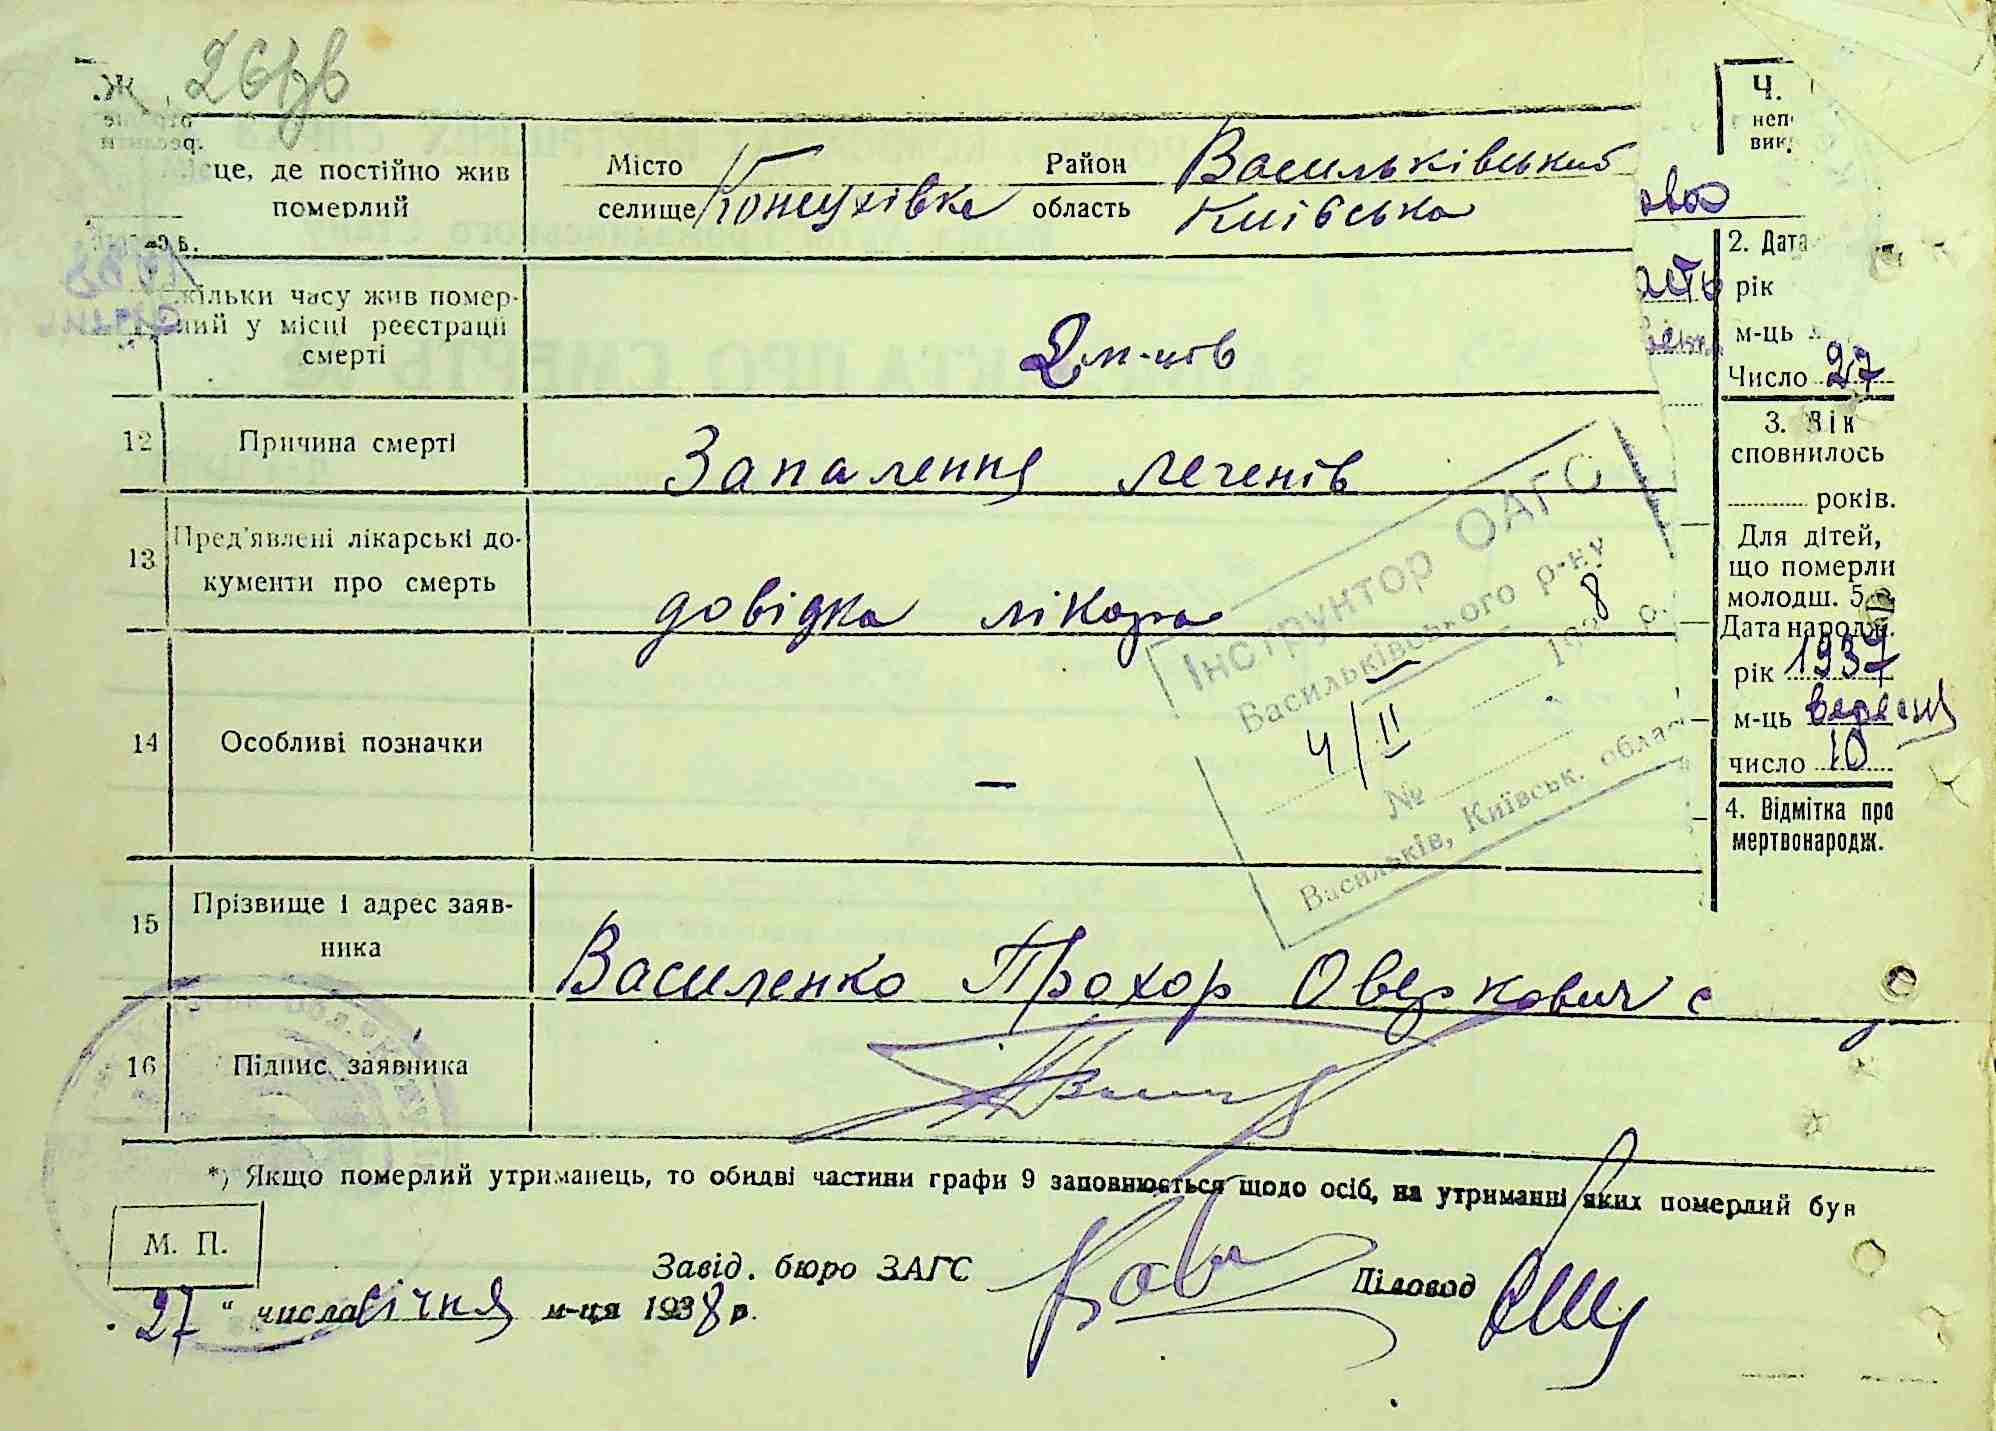 Ж
Місце, де постійно жив
померлий
Місто
селище Кощіївка
Район Васильківський
область Київська
скільки часу жив помер-
лий у місці реєстрації
смерті
2 м-ців
12 Причина смерті
Запалення легенів
13 Пред'явлені лікарські до-
кументи про смерть
довідка лікара
14 Особливі позначки
—
Інструктор ОАГС
Васильківського р-ну
4/II 1938 р.
№
Васильків, Київськ. облас
15 Прізвище і адрес заяв-
ника
Василенко Прохор Оверкович с
16 Підпис заявника
*) Якщо померлий утриманець, то обидві частини графи 9 заповнюється щодо осіб, на утриманні яких померлий був
М. П.
Завід. бюро ЗАГС
Діловод
27 " числа січня м-ця 1938 р.
Ч.
неп
вик
2. Дата
рік
м-ць
Число 27
3. Вік
сповнилось
років.
Для дітей,
що померли
молодш. 5
Дата народж.
рік 1937
м-ць вересня
число 10
4. Відмітка про
мертвонародж.